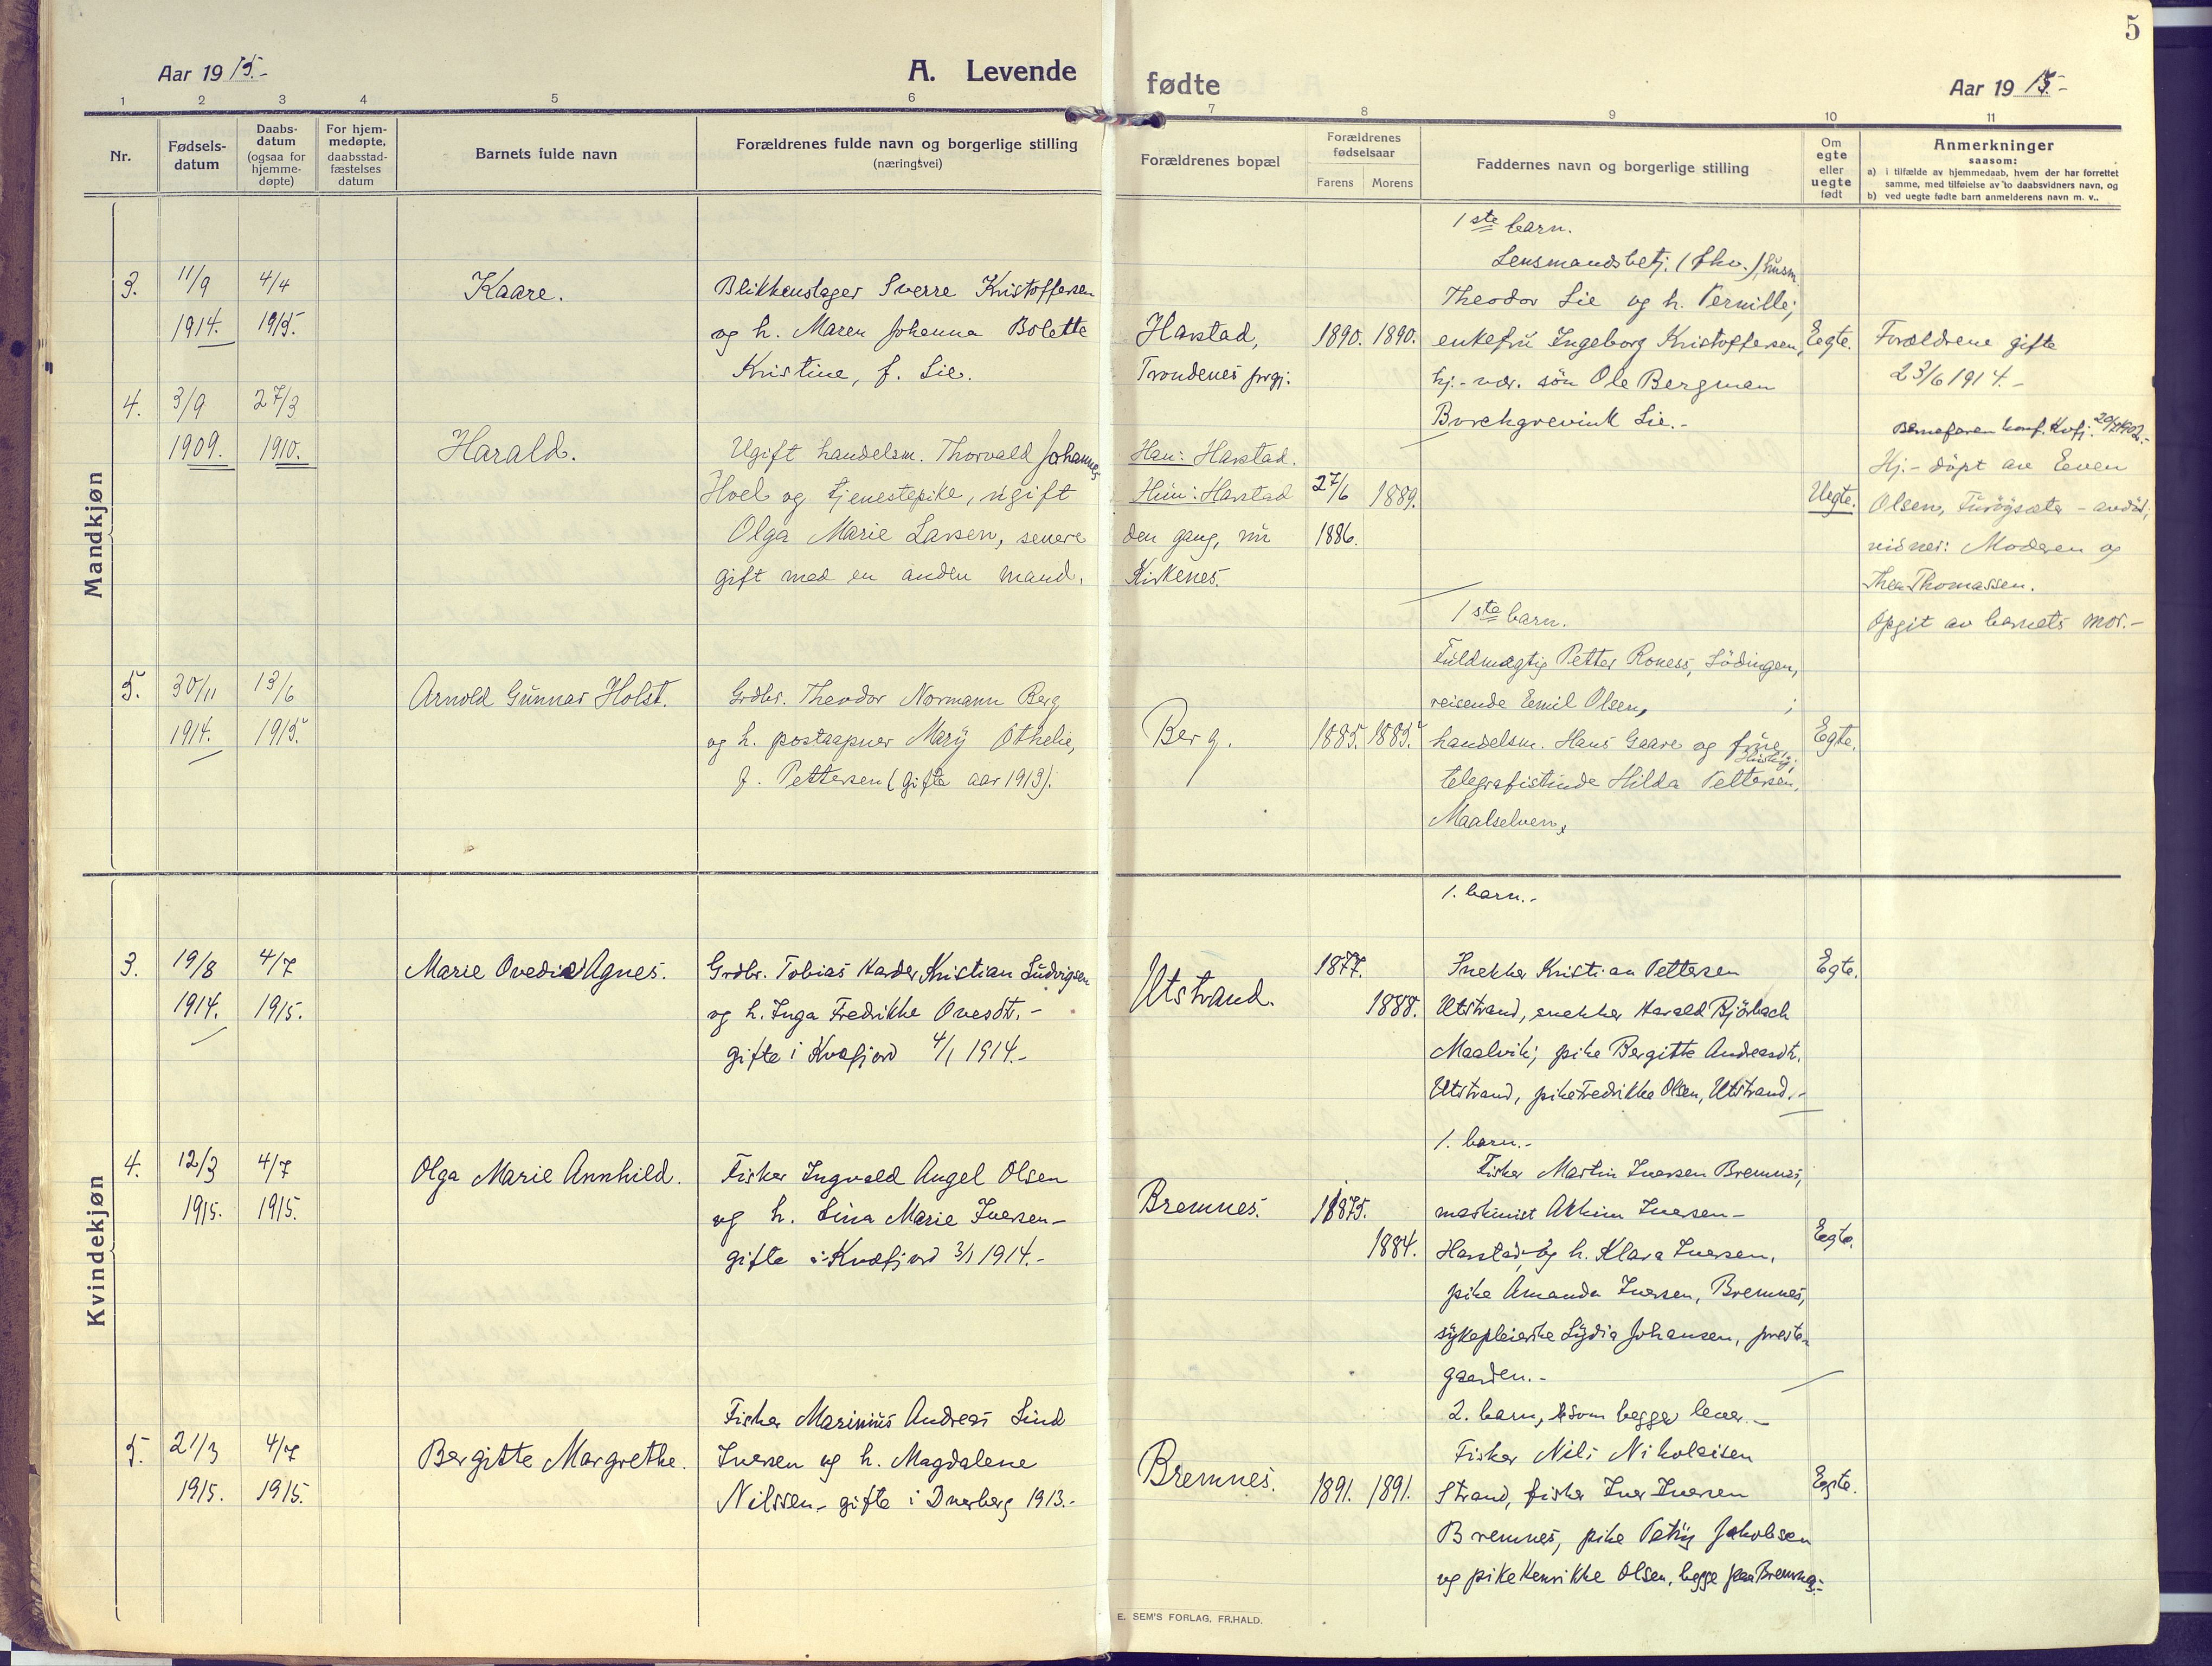 5
Aar 1915.-
A. Levende
fødte
Aar 1915.-
1 2 3 4 5 6 7 8 9 10 11
Nr.
Fødsels-
datum
Daabs-
datum
(ogsaa for
hjemme-
døpte)
For hjem-
medøpte,
daabsstad-
fæstelses
datum
Barnets fulde navn
Forældrenes fulde navn og borgerlige stilling
(næringsvei)
Forældrenes bopæl
Forældrenes
fødselsaar
Farens Morens
Faddernes navn og borgerlige stilling
Om
egte
eller
uegte
født
Anmerkninger
saasom:
a) i tilfælde av hjemmedaab, hvem der har forrettet
samme, med tilføielse av to daabsvidners navn, og
b) ved uegte fødte barn anmelderens navn m. v..
Mandkjøn
3.
11/9
1914.
4/4
1915.
Kaare.
Blikkenslager Sverre Kristoffersen
og h. Maren Johanna Bolette
Kristine, f. Lie.
Harstad,
Trondenes prgj.
1890. 1890.
1ste barn.
Lensmandsbetj.
Theodor Lie og h. Pernille;
enkefrü Ingeborg Kristoffersen,
hj.-vær. søn Ole Bergman
Borchgrevink Lie.-
Egte.
Forældrene gifte
23/6 1914.-
4.
3/9
1909.
27/3
1910.
Harald.
Ugift handelsm. Thorvald Johannes
Hoel og tjenestepike, ugift
Olga Marie Larsen, senere
gift med en anden mand.
Han: Harstad.
Hün: Harstad
den gang, nü
Kirkenes.
27/6
1886.
1889.
Uegte.
Barnefaren konf. Kvfj.
Hj.-døpt av Even
Olsen,
vidner: Moderen og
Thea Thomassen.
Opgit av barnets mor.-
5.
30/11
1914.
13/6
1915.
Arnold Günnar Holst.
Grdbr. Theodor Normann Berg
og h. postaapner Marÿ Othelie,
f. Pettersen (gifte aar 1913).
Berg.
1885. 1885.
1ste barn.
Füldmægtig Petter Roness, Lödingen,
reisende Emil Olsen, ;
handelsm. Hans Gaare og früe,
telegrafistinde Hilda Pettersen,
Maalselven,
Egte.
Kvindekjøn
3.
19/8
1914.
4/7
1915.
Marie Ovedie Agnes.
Grdbr. Tobias Harder Kristian Lüdvigsen
og h. Inga Fredrikke Ovesdtr.-
gifte i Kvæfjord 4/1 1914.-
Utstrand.
1877.
1888.
1. barn.-
Snekker Kristian Pettersen
Utstrand, snekker Harald Bjørbach
Maalvik; pike Bergitte Andreasdtr.
Utstrand, pike Fredrikke Olsen, Utstrand.-
Egte.
4.
12/3
1915.
4/7
1915.
Olga Marie Annhild.
Fisker Ingvald Angel Olsen
og h. Lina Marie Iversen-
gifte i Kvæfjord 3/1 1914.-
Bremnes.
1875.
1884.
1. barn.-
Fisker Martin Iversen Bremnes,
maskinist Akkim Iversen-
Harstad, og h. Klara Iversen,
pike Amanda Iversen, Bremnes,
sÿkepleierske Lÿdia Johansen, preste-
gaarden.-
Egte.
5.
21/3
1915.
4/7
1915.
Bergitte Margrethe.
Fisker Marinüs Andreas Lind
Iversen og h. Magdalene
Nilssen- gifte i Dverberg 1913.-
Bremnes.
1891. 1891.
2. barn, som begge lever.-
Fisker Nils Nikolaisen
Strand, fisker Iver Iversen
Bremnes, pike Petrÿ Jakobsen
og pike Henrikke Olsen, begge paa Bremnes.-
Egte.
E. SEM'S FORLAG, FR.HALD.